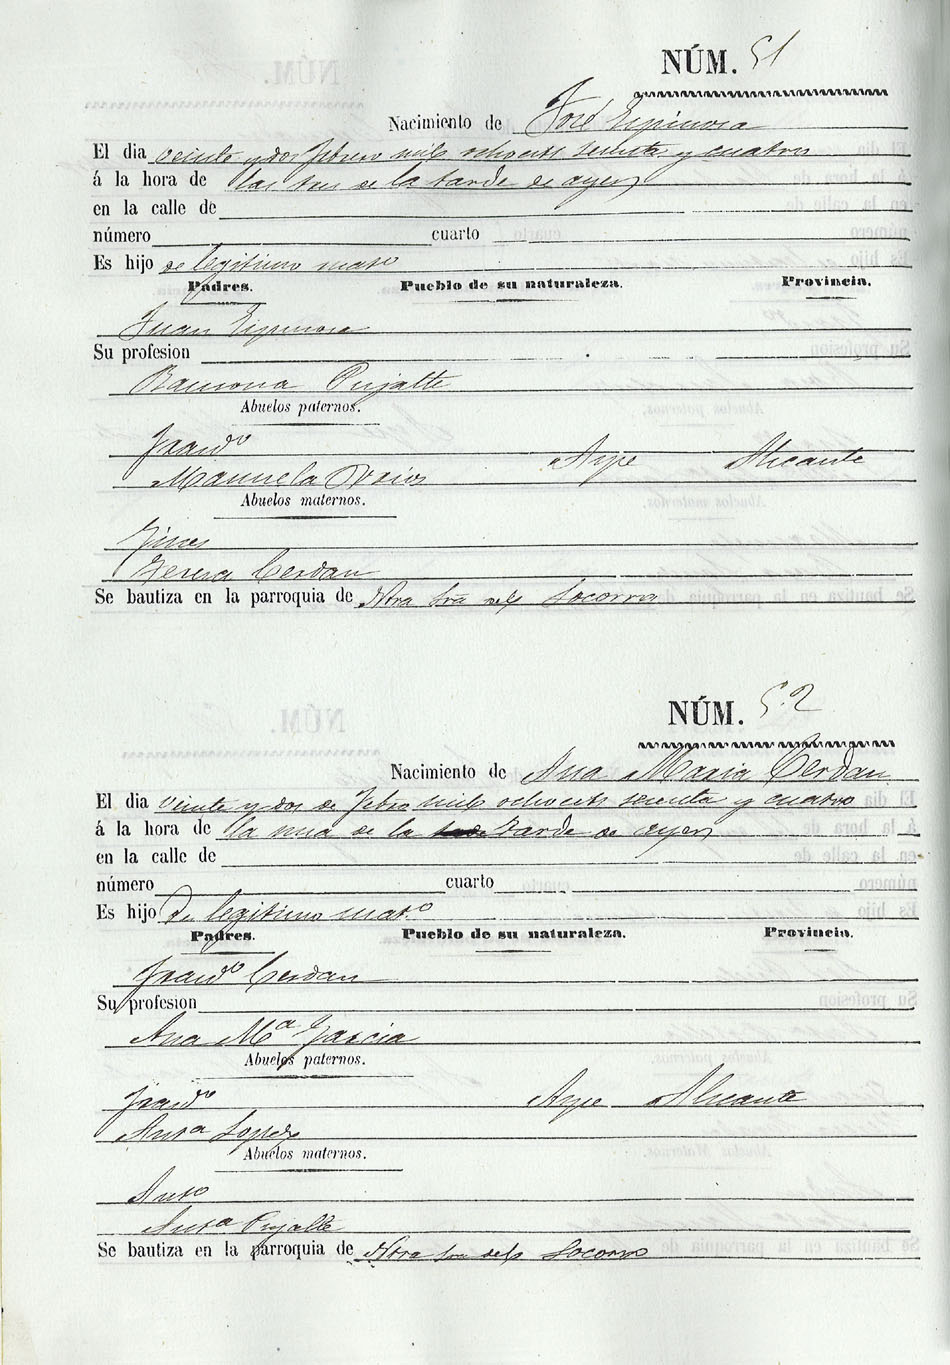 NÚM. 51
Nacimiento de José Espinosa
El dia veinte y dos febrero mil ochocts sesenta y cuatro
á la hora de las tres de la tarde de ayer
en la calle de
número cuarto
Es hijo de legitimo mato
Padres. Pueblo de su naturaleza. Provincia.
Juan Espinosa
Su profesion
Ramona Pujalte
Abuelos paternos.
Franco
Manuela Aspe Alicante
Abuelos maternos.
Gines
Teresa Cerdan
Se bautiza en la parroquia de Ntra Sra del Socorro
NÚM. 52
Nacimiento de Ana Maria Cerdan
El dia veinte y dos de Febro mil ochocts sesenta y cuatro
á la hora de la una de la tarde de ayer
en la calle de
número cuarto
Es hijo de legitimo mato
Padres. Pueblo de su naturaleza. Provincia.
Franco Cerdan
Su profesion
Ana Ma Garcia
Abuelos paternos.
Franco Aspe Alicante
Anta Lopez
Abuelos maternos.
Anto
Anta Pujalte
Se bautiza en la parroquia de Ntra Sra del Socorro